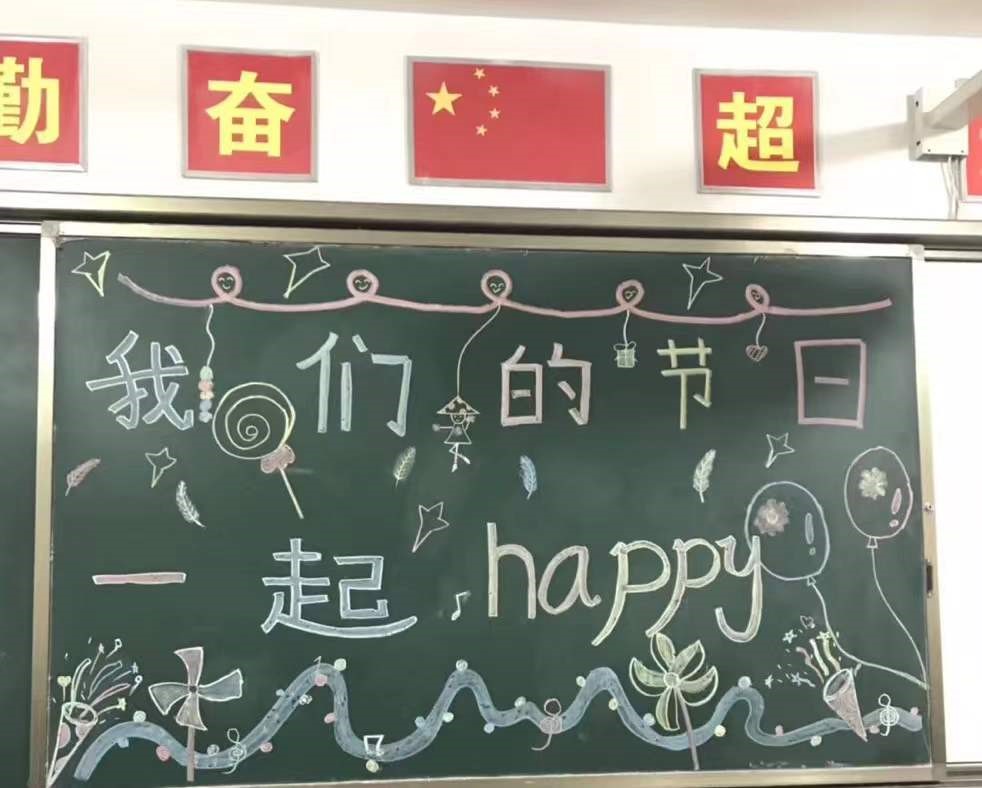 勤 奋 超
我们的节日
一起happy